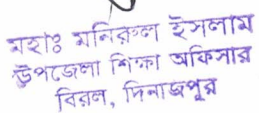 মহাঃ মনিরুল ইসলাম
উপজেলা শিক্ষা অফিসার
বিরল, দিনাজপুর